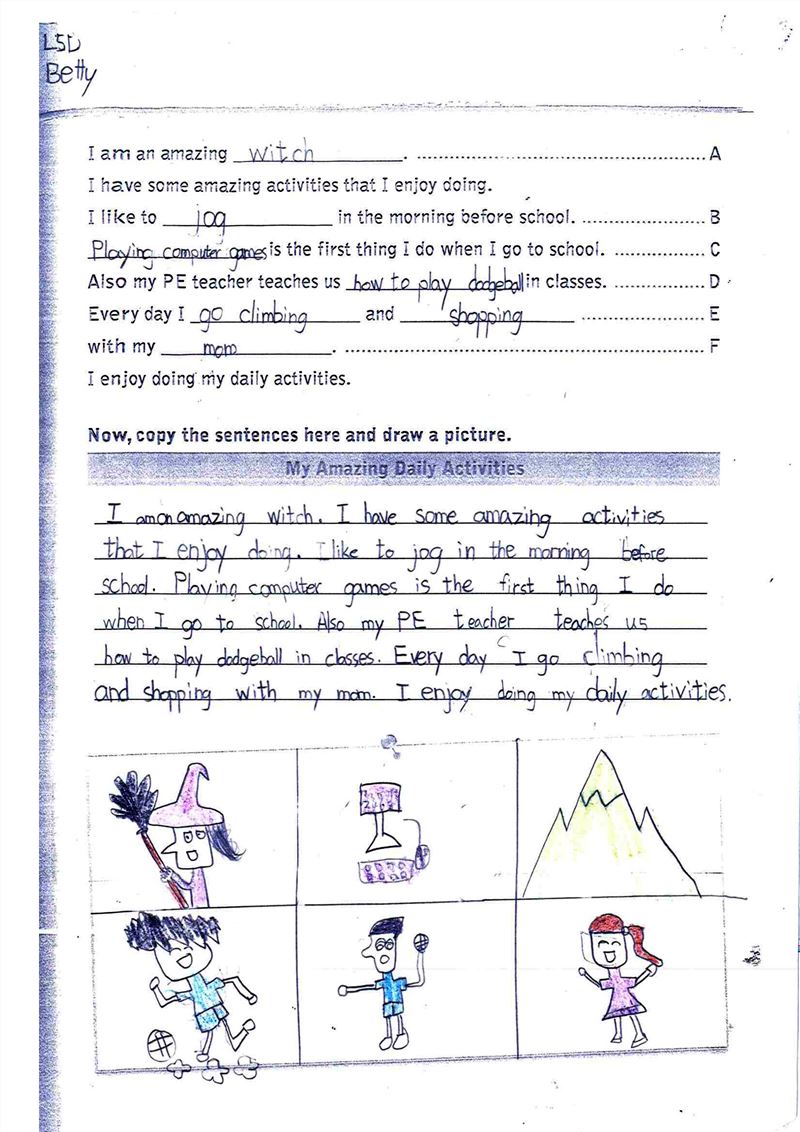 L5D
Betty
I am an amazing witch. A
I have some amazing activities that I enjoy doing.
I like to jog in the morning before school. B
Playing computer games is the first thing I do when I go to school. C
Also my PE teacher teaches us how to play dodgeball in classes. D
Every day I go climbing and shopping E
with my mom. F
I enjoy doing my daily activities.
Now, copy the sentences here and draw a picture.
My Amazing Daily Activities
I am an amazing witch. I have some amazing activities
that I enjoy doing. I like to jog in the morning before
school. Playing computer games is the first thing I do
when I go to school. Also my PE teacher teaches us
how to play dodgeball in classes. Every day I go climbing
and shopping with my mom. I enjoy doing my daily activities.